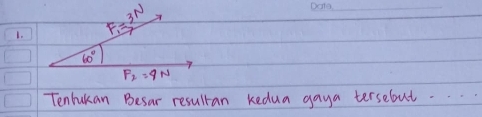 Data
1. F₁ = 3N
60°
F₂ = 4N
Tentukan Besar resultan kedua gaya tersebut . . . .